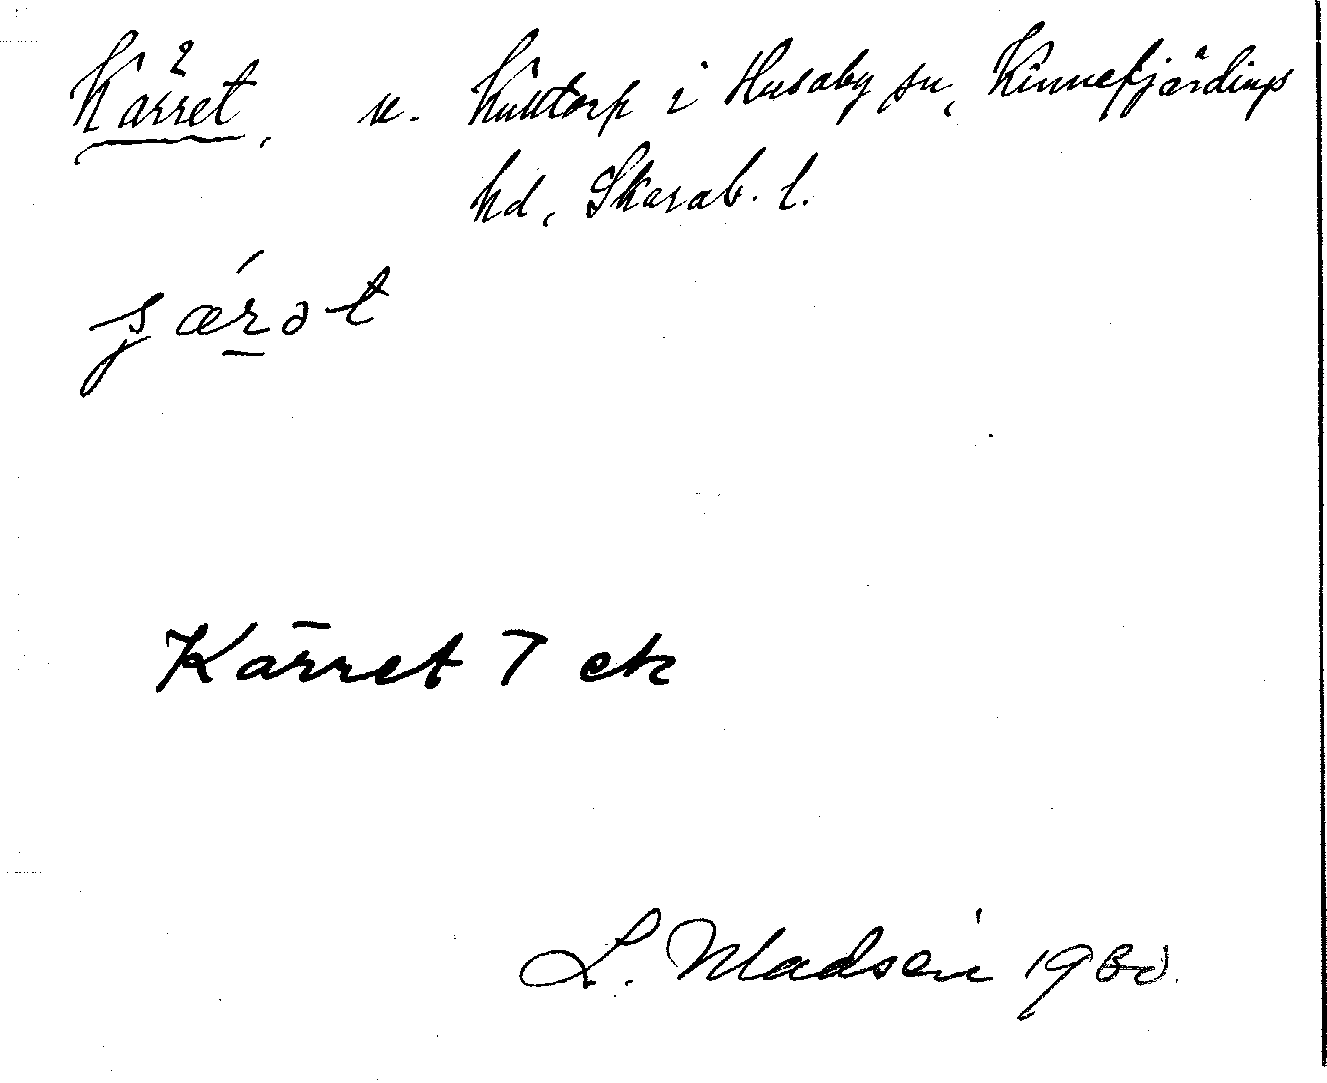 Kärret, u. Kulltorp i Husaby sn, Kinnefjärdings
hd, Skarab. l.
Kärret 7 ek
L. Madsén 1930.